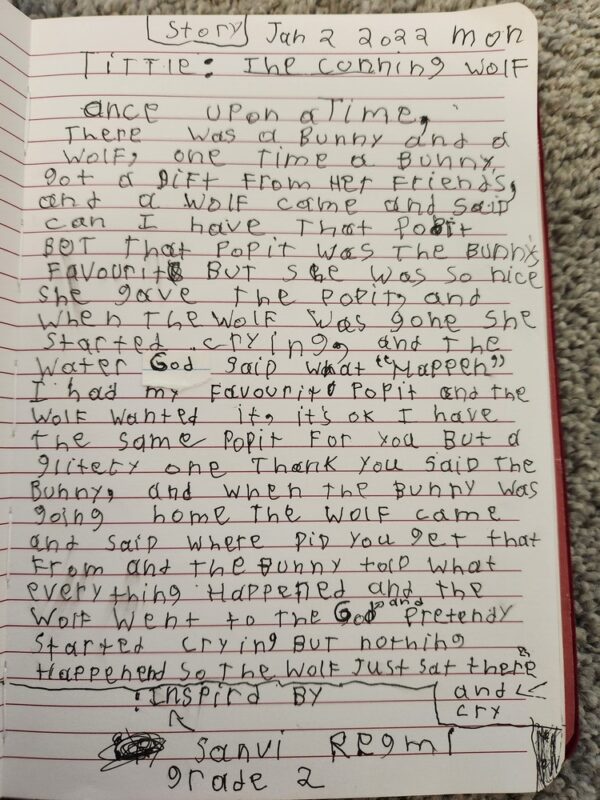 Story Jan 2 2022 mon
TITTLE: The conning wolf
ance upon a Time,
There was a Bunny and a
wolf, one time a Bunny
got a Dift From Her Friends,
and a wolf came and said
can I have That Popit
BUT That Popit was the Bunny,s
Favourite BUT She was so nice
she gave the Popit, and
when the wolf was gone she
started crying, and the
water God said what "Happen"
I had my Favourit Popit and the
wolf wanted it, it's ok I have
the same Popit For you But a
glitety one Thank you said the
Bunny, and when the Bunny was
going home the wolf came
and said where Did you get that
From and the Bunny told what
everything Happened and the
wolf went to the God and Pretendy
started crying But nothing
Happenend so the wolf Just sat there
and
cry
: Inspird By
Sanvi Regmi
grade 2